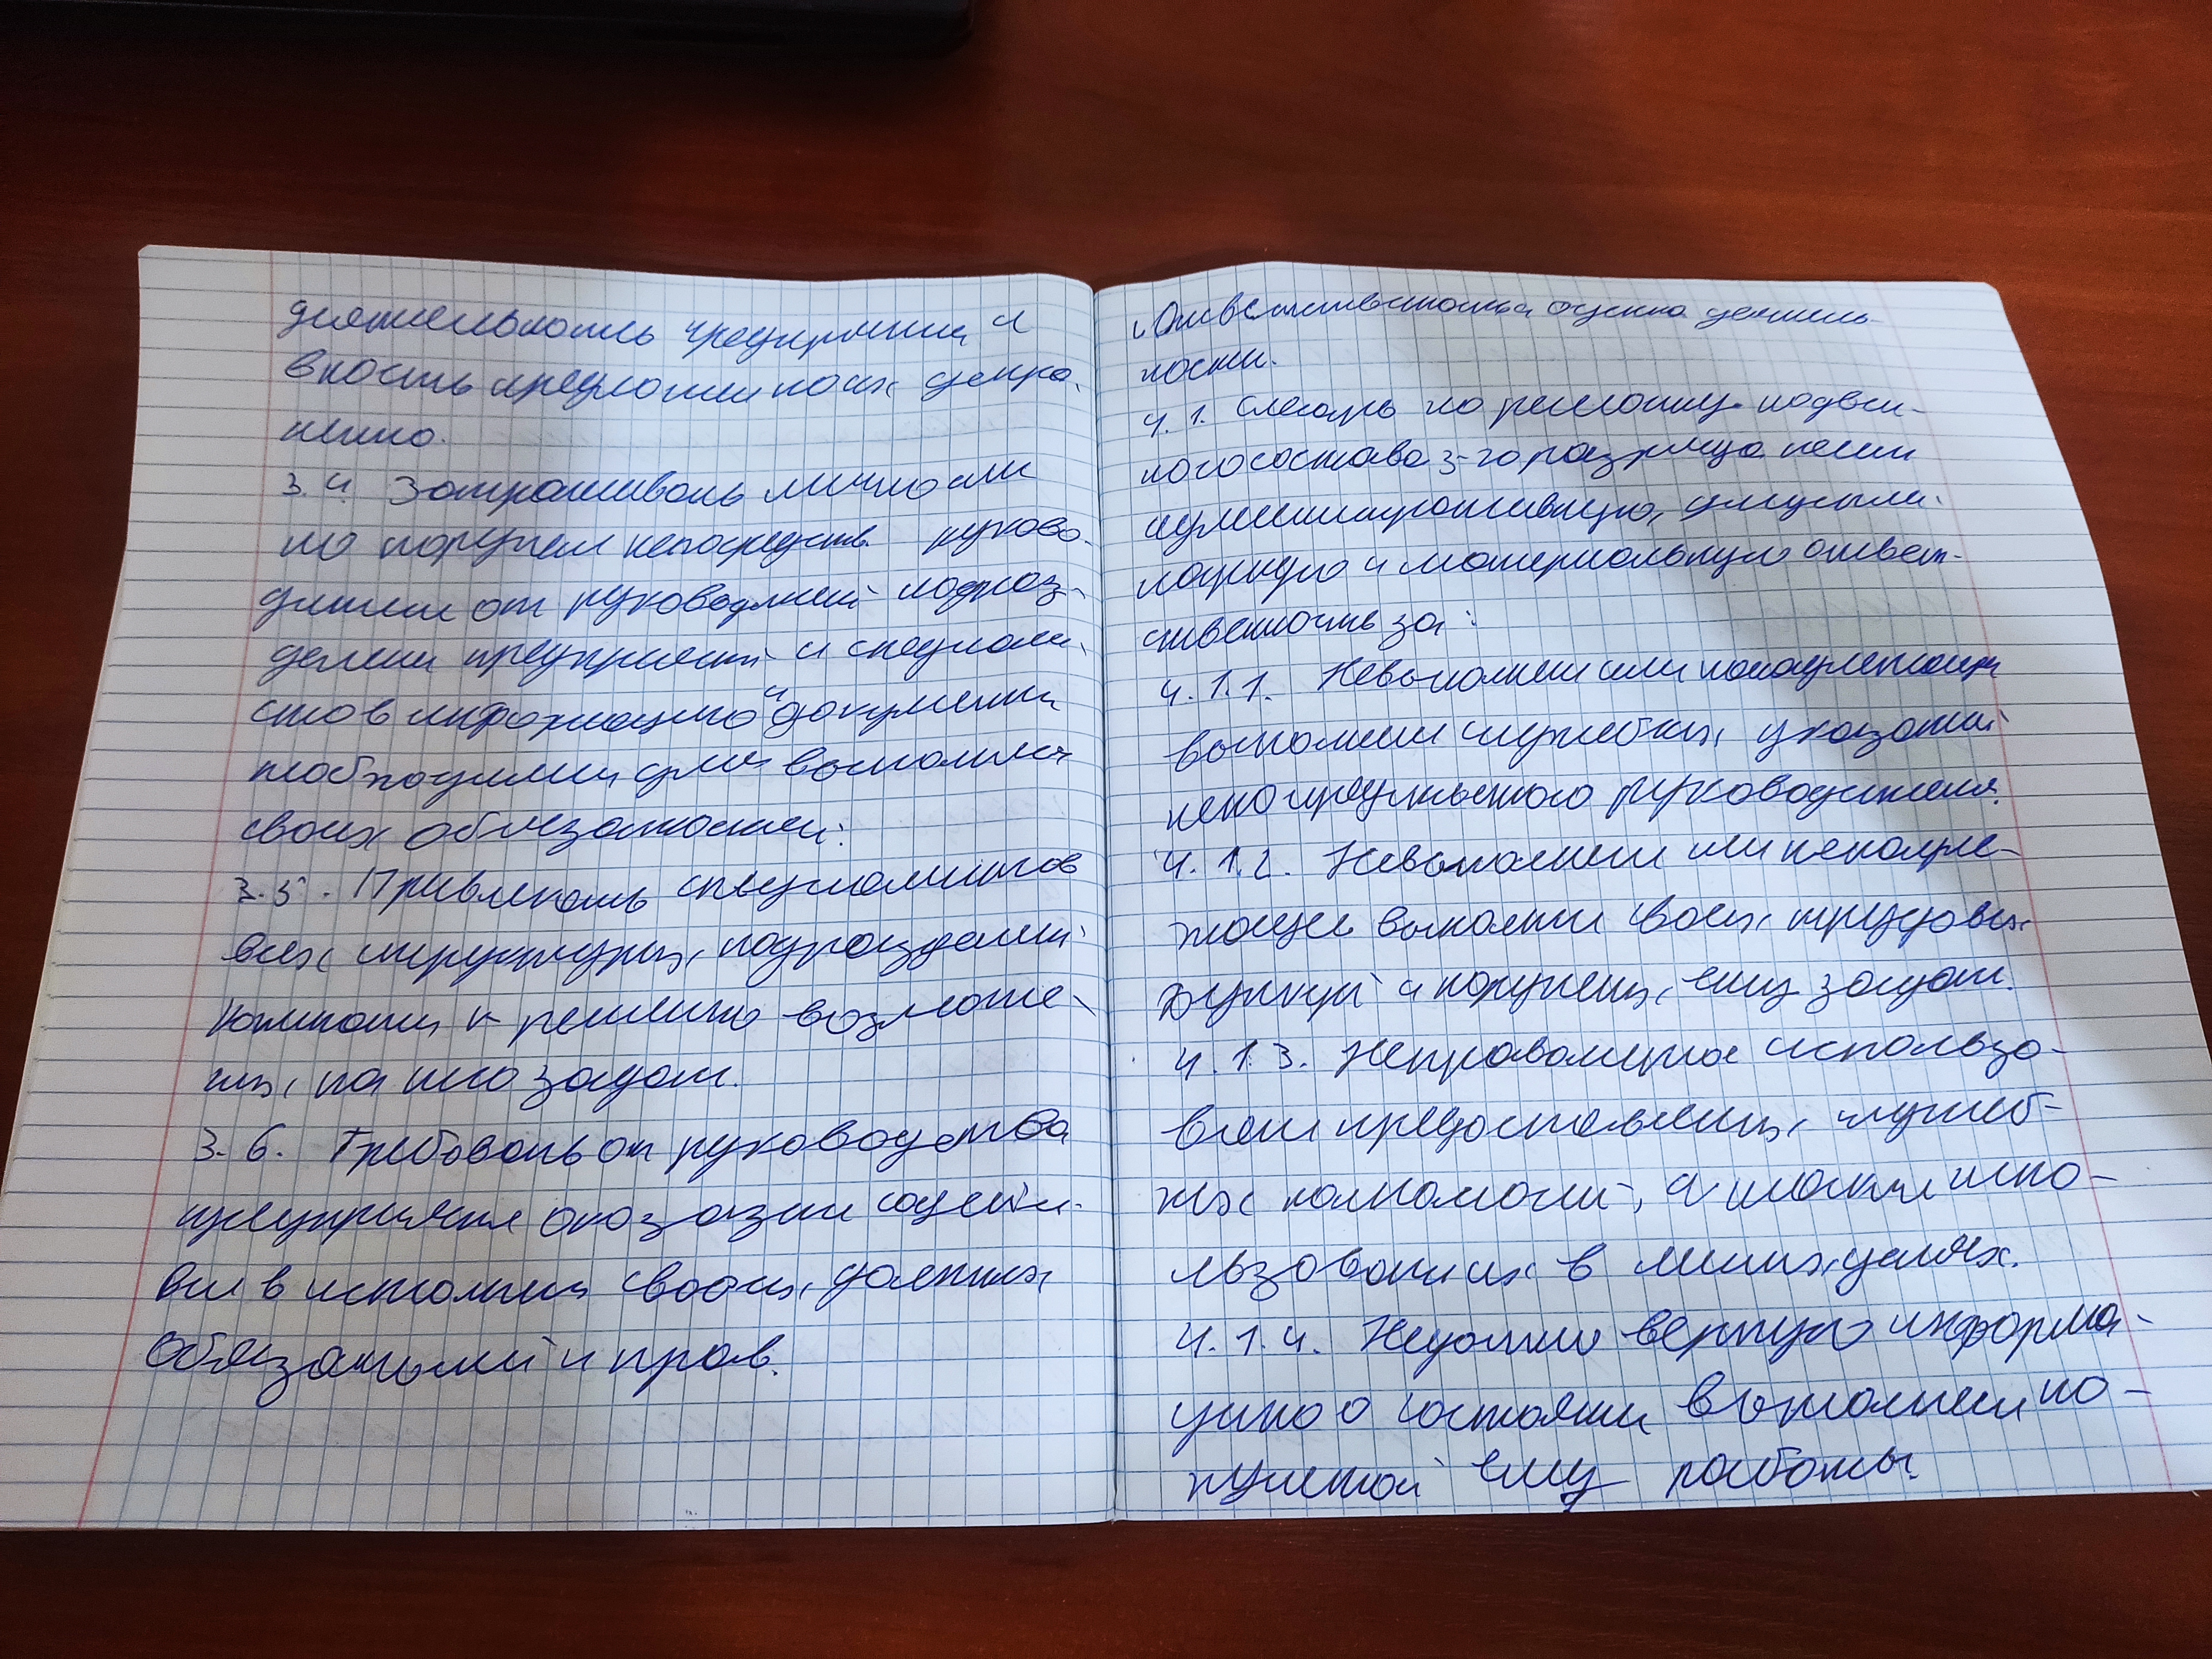 деятельность предприятия и
вность предложении по их
ненно.
3.4. Запрашивать лично или
по поручен непосредств. руково-
дителя от руководителей подраз-
делени предприятий и специали-
стов информацию и документы
необходимы для выполнен
своих обязанностей.
3.5. Привлекать специалистов
всех структурн, подразделений
компании к решению возложе-
нных, на него задач.
3.6. Требовать от руководства
предприятия оказания содейст-
вия в исполнении своих, должных
обязанностей и прав.
Ответственность и оценка деятель-
ности.
4.1. Слесарь по ремонту подвиж-
ного состава 3-го разряда несет
административную, дисципли-
нарную и материальную ответ-
ственность за:
4.1.1. Невыполнен или ненадлежащ
выполнен служебных указаний
непосредственного руководителя.
4.1.2. Невыполнен или ненадле-
жащее выполнен своих, трудовых
функций и поручен, ему задач.
4.1.3. Неправомерное использо-
вание предоставлен, служеб-
ных полномочий, а также испо-
льзовани их в личных, целях.
4.1.4. Недостоверную информа-
цию о состоянии выполнен по-
рученной ему работы